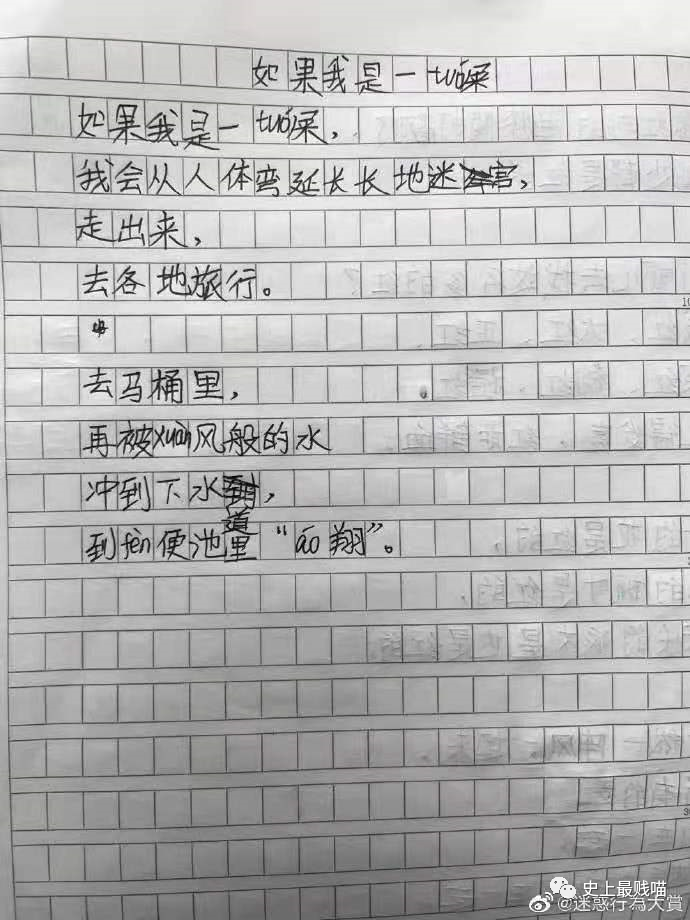 如果我是一tuó屎
如果我是一tuó屎，
我会从人体弯延长长地迷宫，
走出来，
去各地旅行。
去马桶里，
再被xuàn风般的水
冲到下水道，
到fèn便池里“áo翔”。
史上最贱喵
@迷惑行為大賞